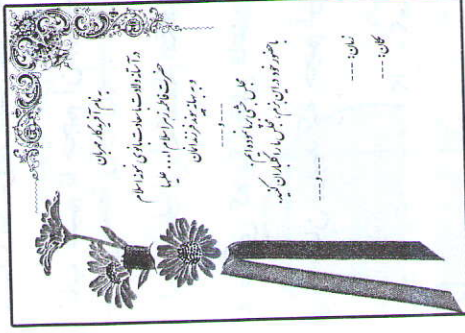 به نام آفریدگار مهربان
در آستانه ولادت باسعادت بانوی نمونه اسلام
حضرت فاطمه زهرا سلام ا... علیها
و به میمنت پیوند فرزندانمان
---- و ----
مجلس جشنی برپا نموده‌ایم
با حضور خود در این بزم، محفل ما را گلباران کنید.
---- و ----
زمان: ----
مکان: ----